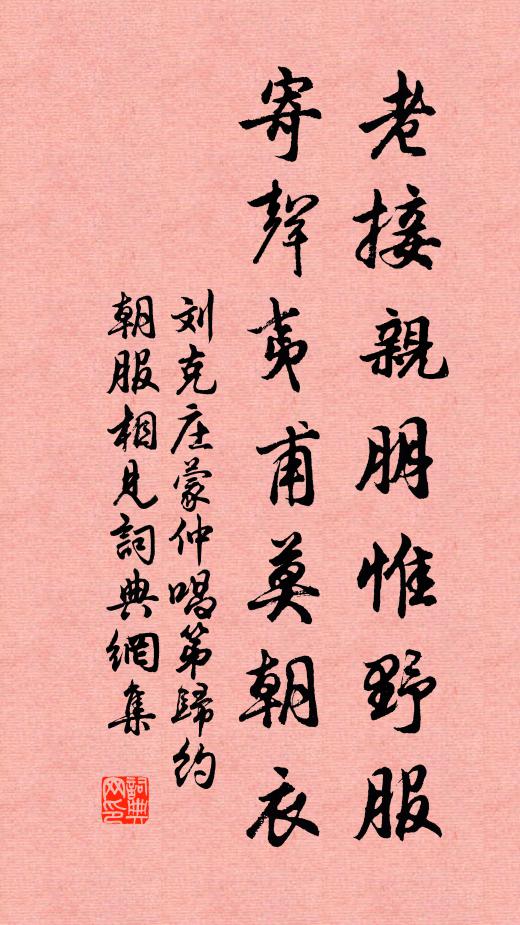 老接親朋惟野服
寄聲夷甫莫朝衣
刘克庄蒙仲唱第歸約
朝服相見詞典網集
詞典网印